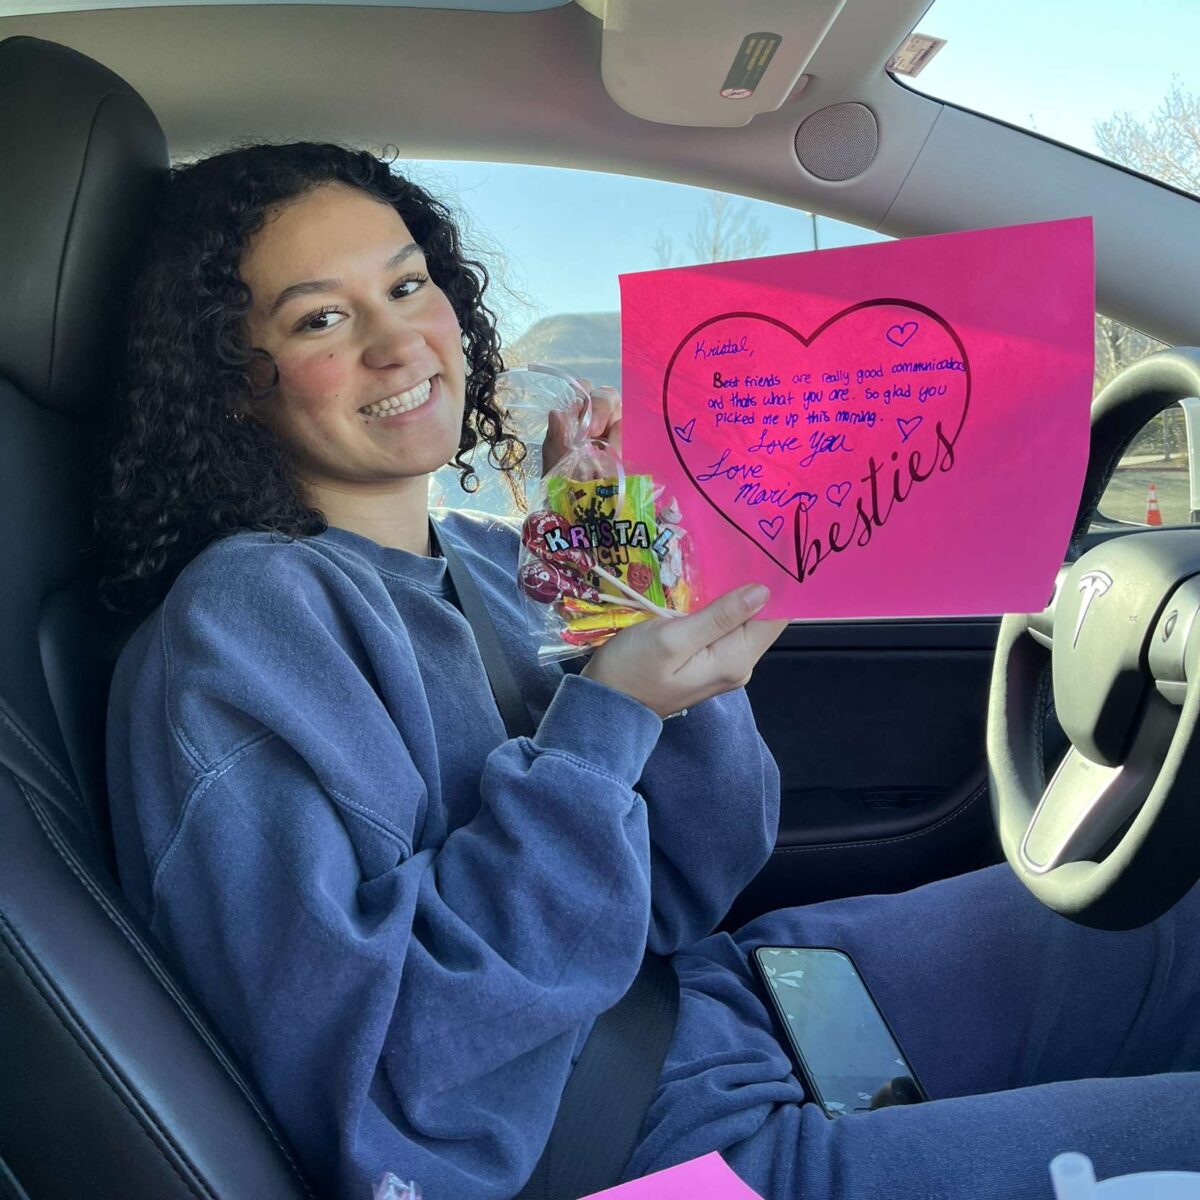 Kristal,
Best friends are really good communicators
and thats what you are. So glad you
picked me up this morning.
Love You
Love
Mari
besties
KRISTAL